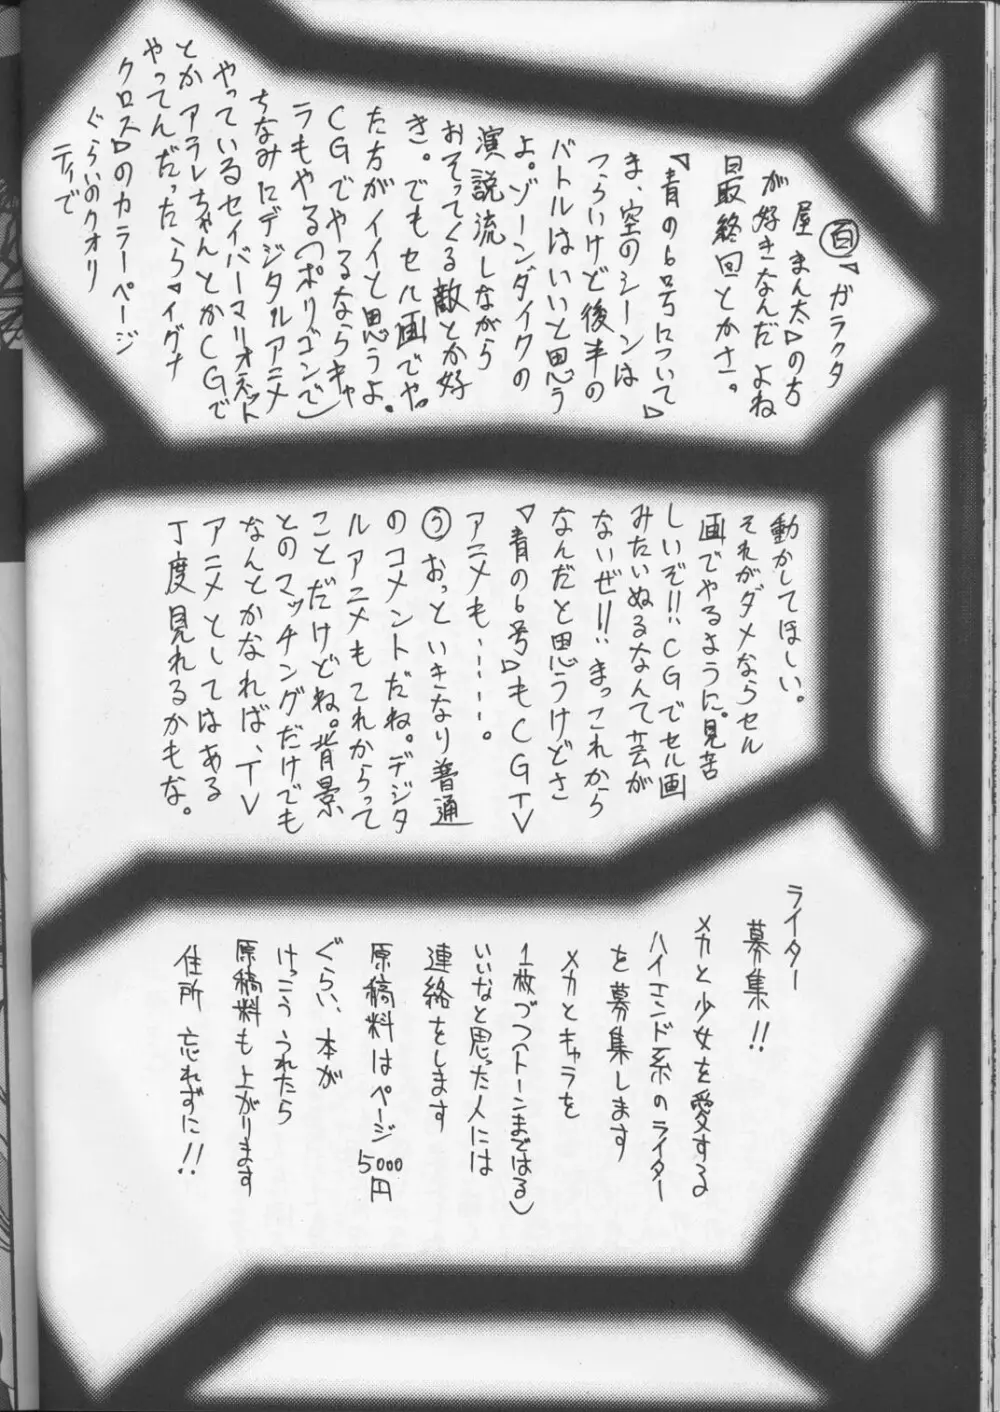 百「ガラクタ
屋まん太」の方
が好きなんだよね
最終回とかさ。
『青の6号について』
ま、空のシーンは
つらいけど後半の
バトルはいいと思う
よ。ゾーンダイクの
演説流しながら
おそってくる敵とか好
き。でもセル画でや
た方がイイと思うよ。
CGでやるならキャ
ラもやる(ポリゴンで)
ちなみにデジタルアニメ
やっているセイバーマリオネット
とかアラレちゃんとかCGで
やってんだったら「イグナ
クロス」のカラーページ
ぐらいのクオリ
ティで
動かしてほしい。
それがダメならセル
画でやるように。見苦
しいぞ!!CGでセル画
みたいぬるなんて芸が
ないぜ!!まっこれから
なんだと思うけどさ
「青の6号」もCGTV
アニメも・・・・・。
う おっといきなり普通
のコメントだね。デジタ
ルアニメもこれからって
ことだけどね。背景
とのマッチングだけでも
なんとかなれば、TV
アニメとしてはある
丁度見れるかもな。
ライター
募集!!
メカと少女を愛する
ハイエンド系のライター
を募集します
メカとキャラを
1枚づつ(トーンまではる)
いいなと思った人には
連絡をします
原稿料はページ
5000円
ぐらい、本が
けっこううれたら
原稿料も上がります
住所 忘れずに!!